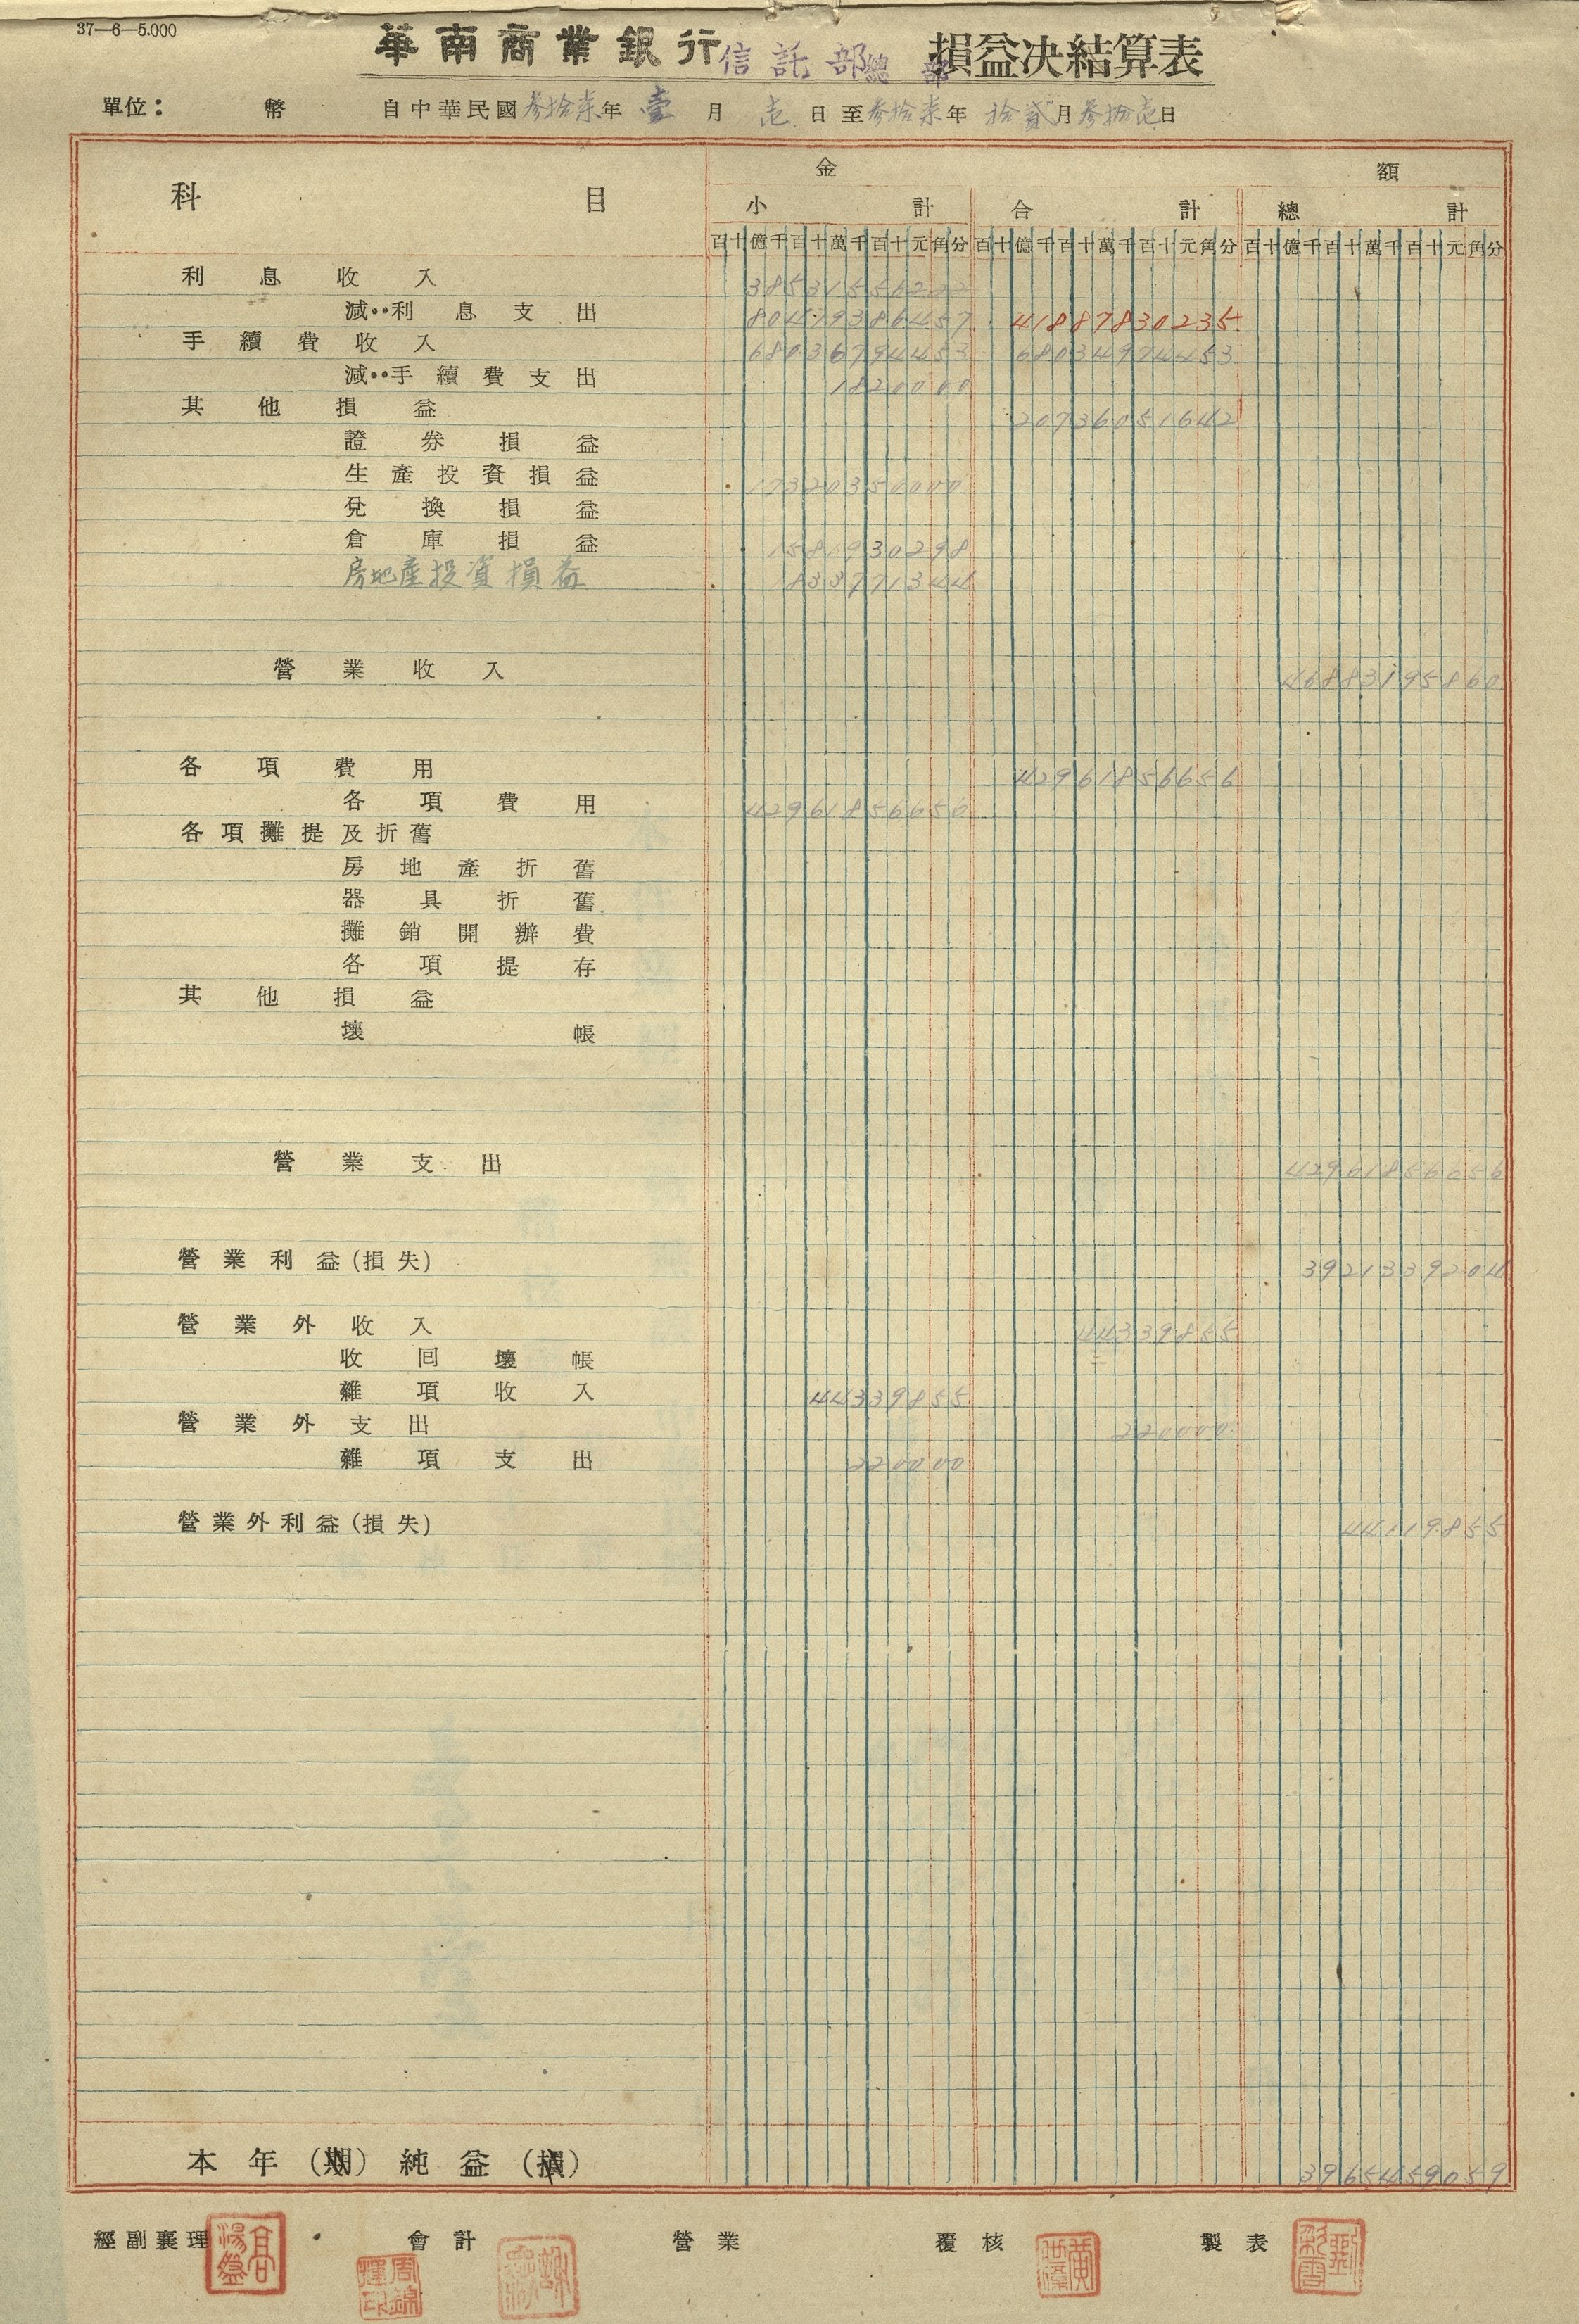 37—6—5.000
華南商業銀行信託部總部損益決結算表
單位： 幣 自中華民國叁拾柒年壹月壱日至叁拾柒年拾貳月叁拾壱日
科目 金額
小計 合計 總計
百十億千百十萬千百十元角分 百十億千百十萬千百十元角分 百十億千百十萬千百十元角分
利息收入 38531556222
減：利息支出 80419386457 41887830235
手續費收入 68036794453 68034974453
減：手續費支出 1820000
其他損益 20736051642
證券損益
生產投資損益 17320350000
兌換損益
倉庫損益 1581930298
房地產投資損益 1833771344
營業收入 46883195860
各項費用 42961856656
各項費用 42961856656
各項攤提及折舊
房地產折舊
器具折舊
攤銷開辦費
各項提存
其他損益
壞帳
營業支出 42961856656
營業利益(損失) 3921339204
營業外收入 44339855
收回壞帳
雜項收入 44339855
營業外支出 220000
雜項支出 220000
營業外利益(損失) 44119855
本年(期)純益(損) 3965459059
經副襄理 會計 營業 覆核 製表
高湯盤
周錦輝印